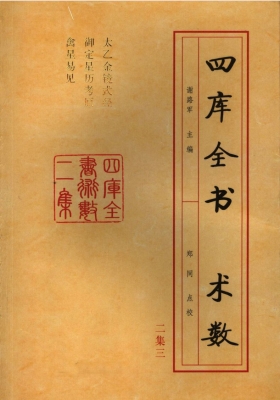 四库全书 术数
谢路军 主编
郑同 点校
二集三
四庫全
書術數
二集
太乙金镜式
御定星历考
禽星易见